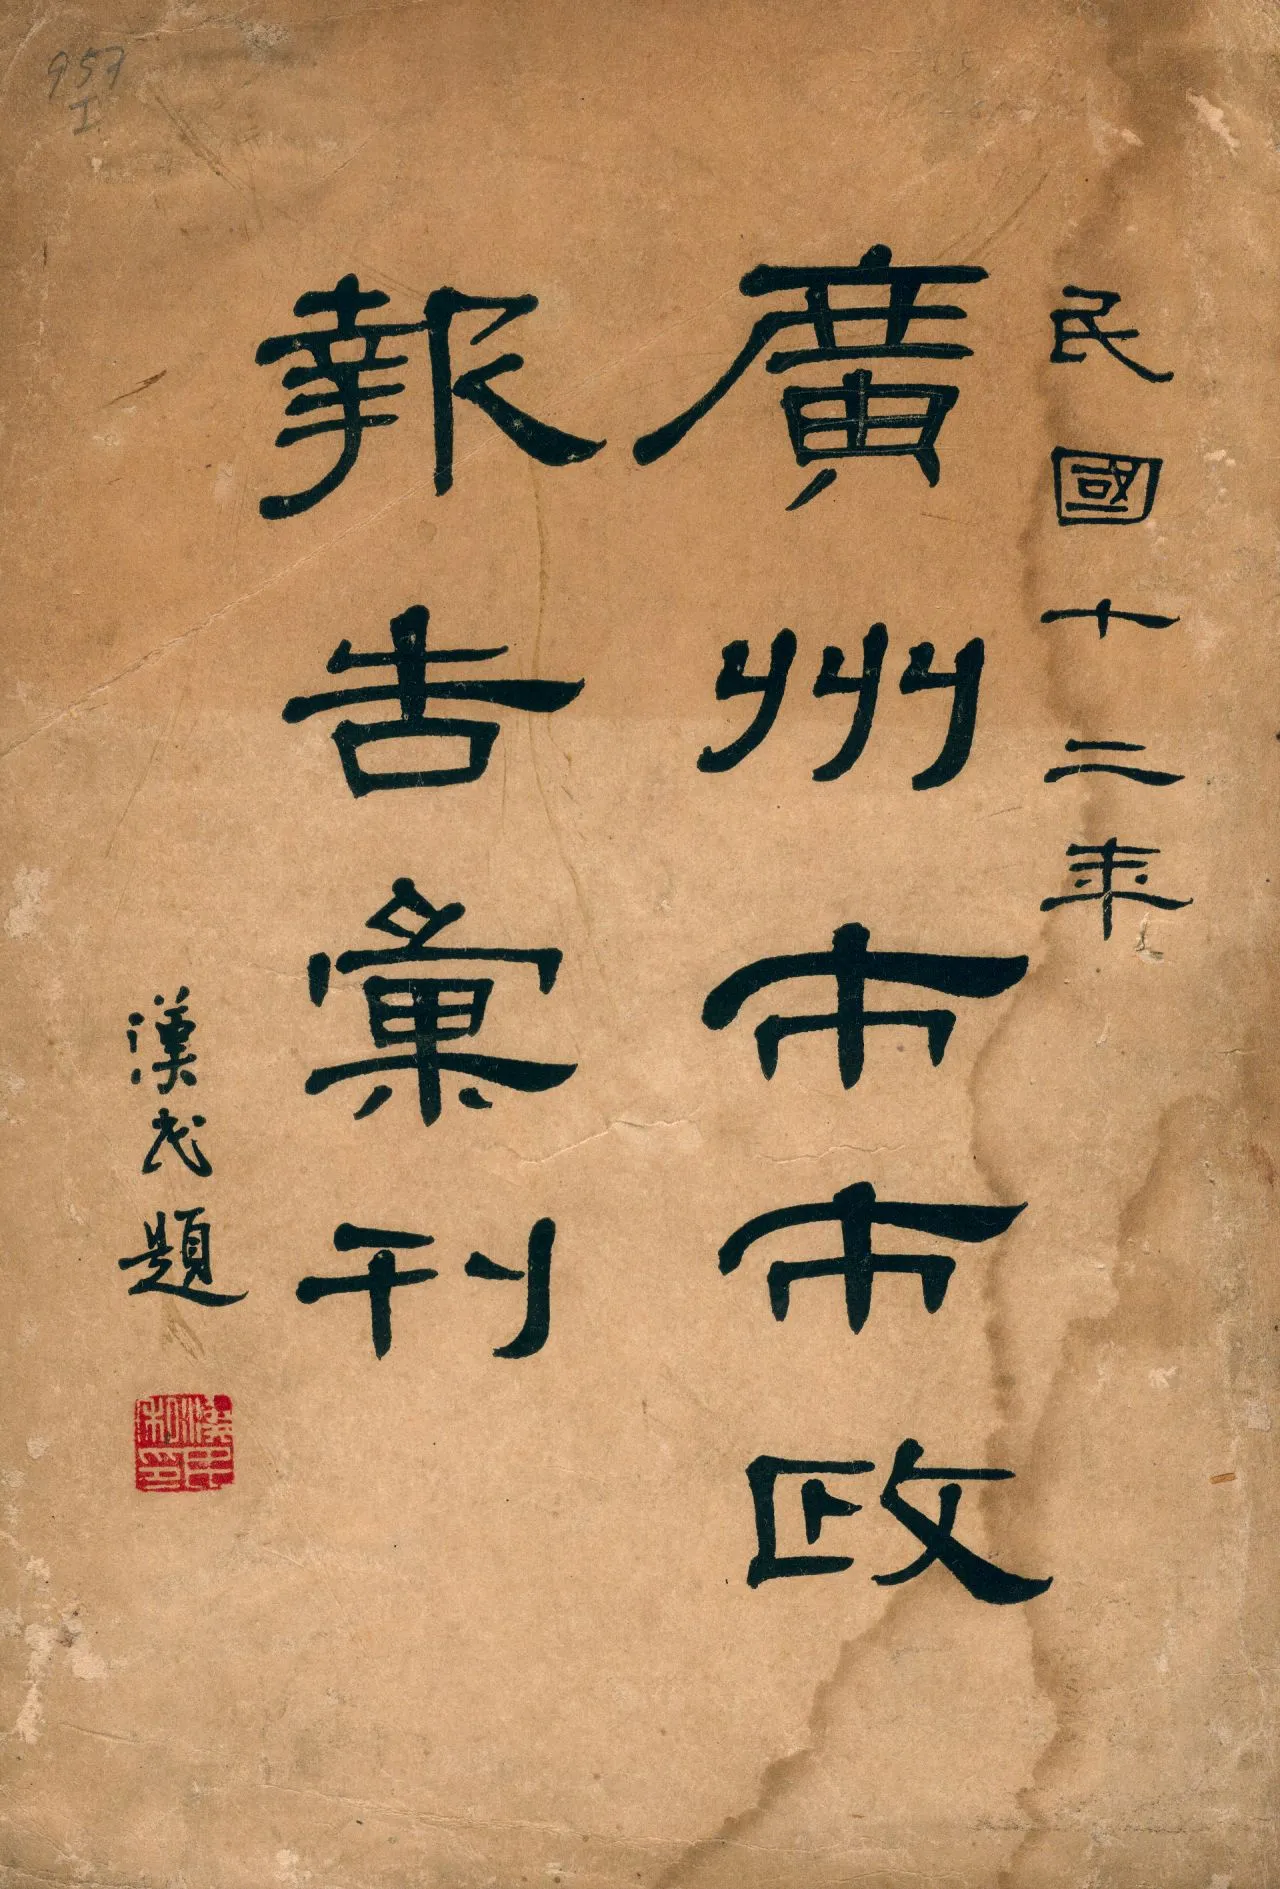 民國十二年
廣州市市政
報告彙刊
漢民題
957
I